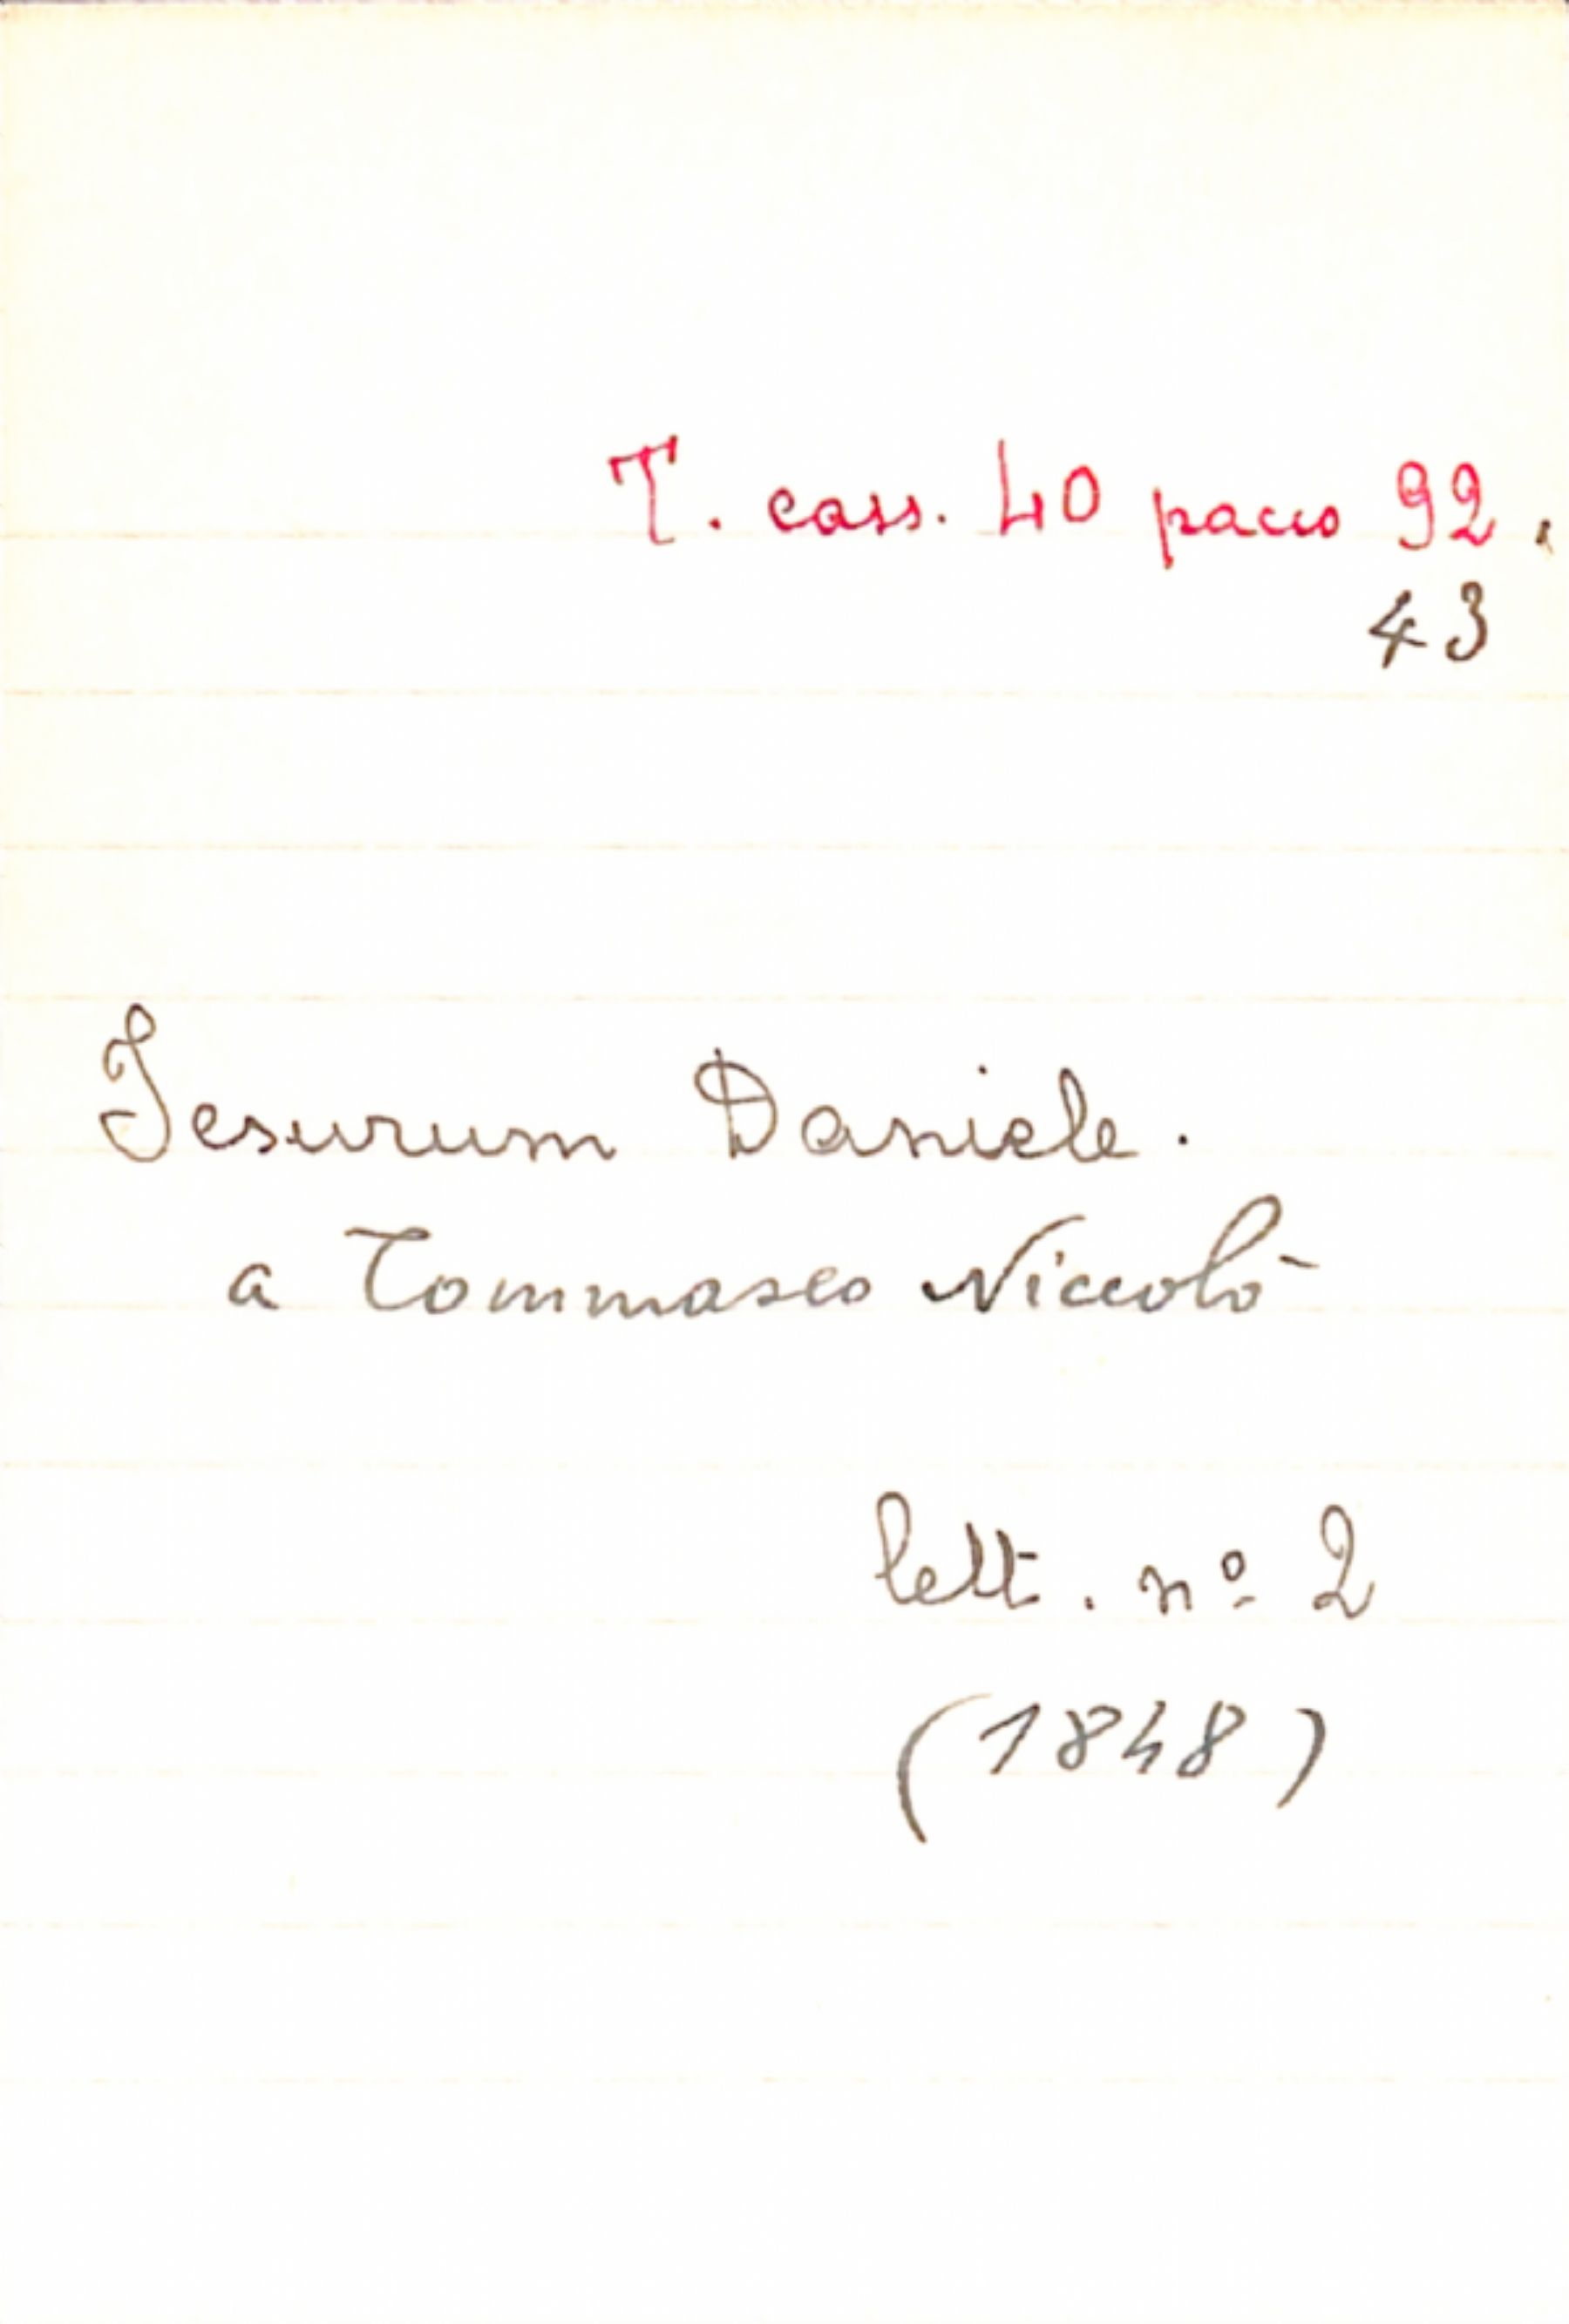 T. cass. 40 pacco 92.
43
Jesurum Daniele.
a Tommaseo Niccolò
lett. nº 2
(1848)